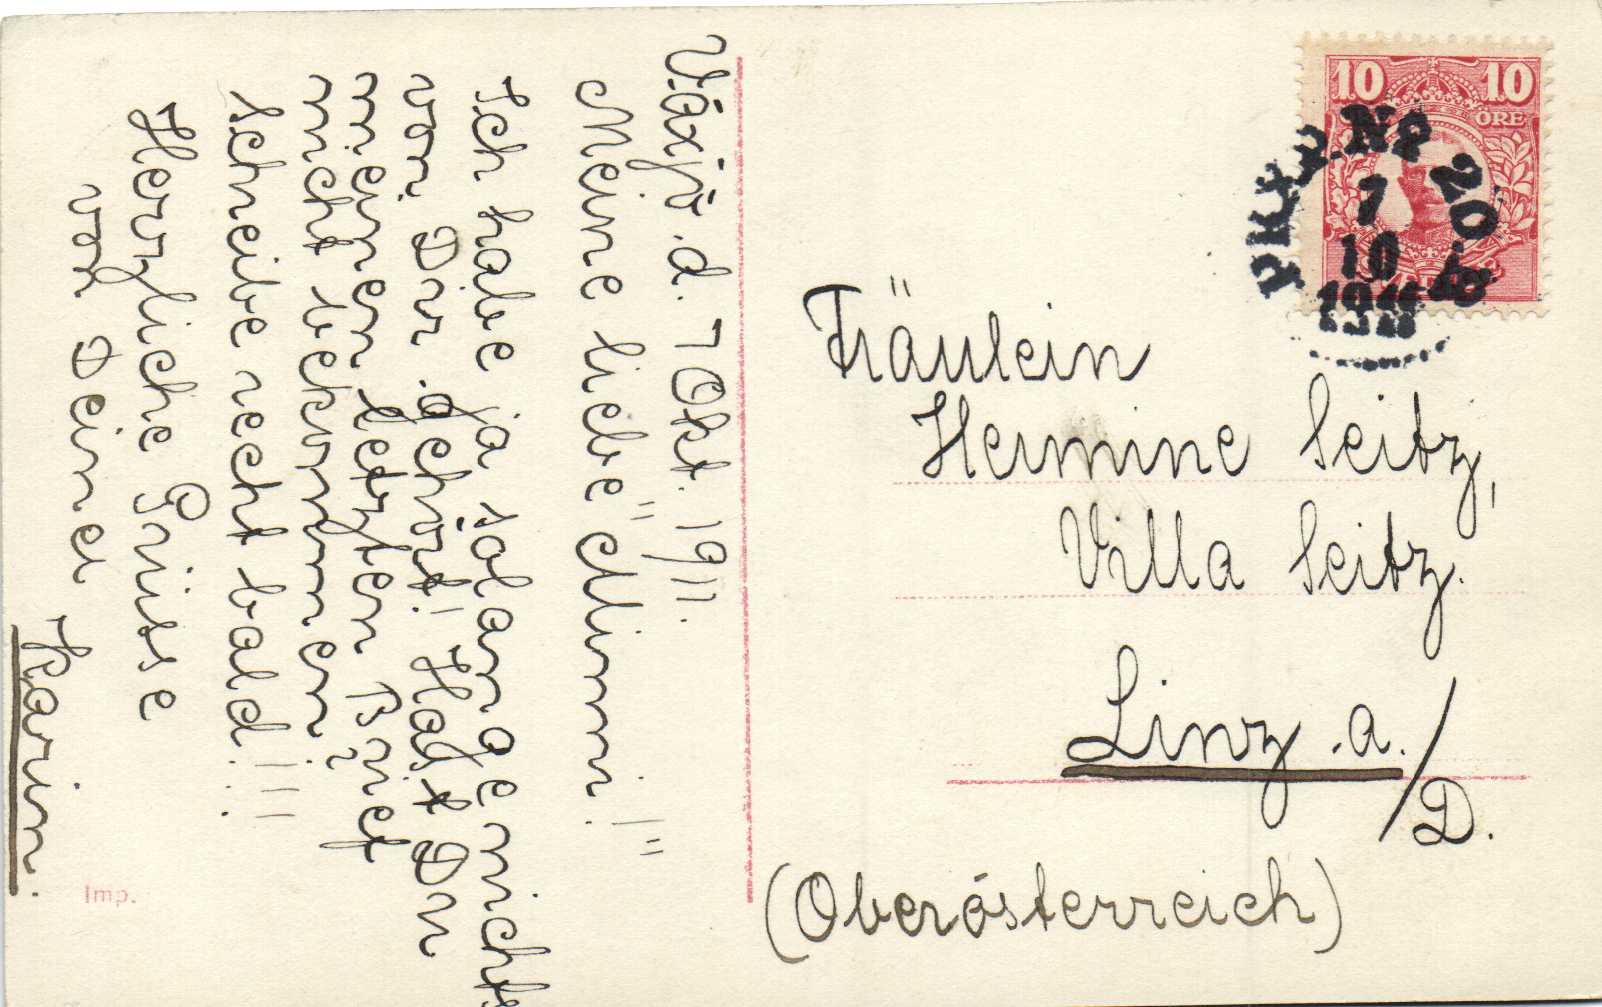 Växjö d. 7 Okt. 1911.
Meine liebe "Minni"!
Ich habe ja solange nichts
von Dir gehört! Hast Du
meinen letzten Brief
nicht bekommen?
Schreibe recht bald!!!
Herzliche Grüsse
von Deiner
Karin.
Imp.
10 10
ÖRE
PKXP. Nº 20. B
7
10
1911
Fräulein
Hermine Seitz,
Villa Seitz.
Linz a./D.
(Oberösterreich)